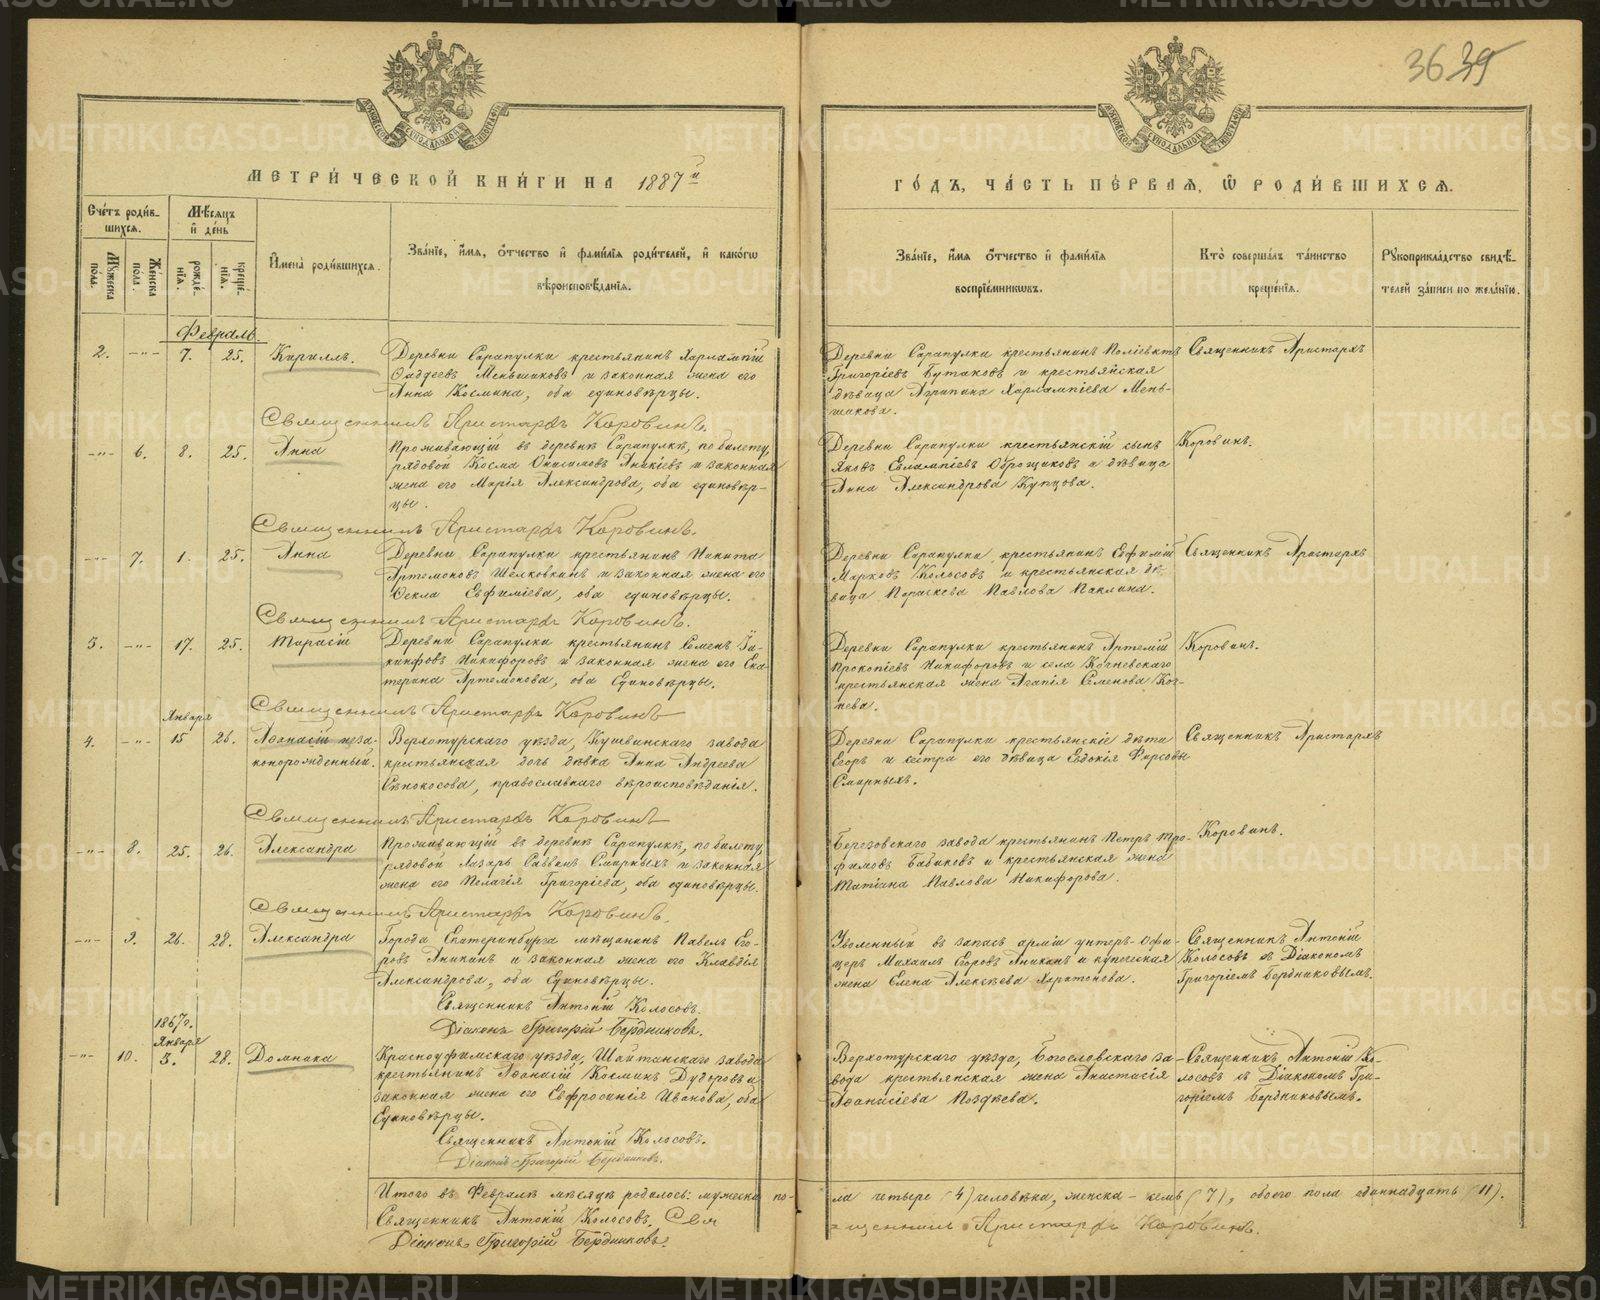 3639
МЕТРИ́ЧЕСКОЙ КНИ́ГИ НА 1887й
ГО́ДЪ, ЧА́СТЬ ПЕ́РВАЯ, Ѿ РОДИ́ВШИХСЯ.
Сче́тъ роди́в-
шихся.
Мѣ́сяцъ
и҆ де́нь
Му́жеска
по́ла.
Же́нска
по́ла.
рожде́-
нїя.
креще́-
нїя.
И҆мена̀ роди́вшихся.
Зва́нїе, и҆́мя, ѻ҆́тчество и҆ фами́лїя роди́телей, и҆ како́гѡ
вѣроисповѣ́данїя.
Зва́нїе, и҆́мя ѻ҆́тчество и҆ фами́лїя
воспрїе́мникѡвъ.
Кто̀ соверша́лъ та́инство
креще́нїя.
Рꙋкоприкла́дство свидѣ́-
телей за́писи по жела́нїю.
Февраль.
2. -"- 7. 25. Кириллъ. Деревни Сарапулки крестьянинъ Харлампій
Фаддеевъ Меньшиковъ и законная жена его
Анна Космина, оба единовѣрцы.
Деревни Сарапулки крестьянинъ Поліевктъ
Григоріевъ Бутаковъ и крестьянская
дѣвица Агрипина Харлампіева Мень-
шикова.
Священникъ Аристархъ
Священникъ Аристархъ Коровинъ.
-"- 6. 8. 25. Анна Проживающій въ деревнѣ Сарапулкѣ, по билету,
рядовой Косма Онисимовъ Аникіевъ и законная
жена его Марія Александрова, оба единовѣр-
цы.
Деревни Сарапулки крестьянскій сынъ
Яковъ Евлампіевъ Оброщиковъ и дѣвица
Анна Александрова Купцова.
Коровинъ.
Священникъ Аристархъ Коровинъ.
-"- 7. 1. 25. Анна Деревни Сарапулки крестьянинъ Никита
Артемоновъ Шелковкинъ и законная жена его
Фекла Евфиміева, оба единовѣрцы.
Деревни Сарапулки крестьянинъ Евфимій
Марковъ Колосовъ и крестьянская дѣ-
вица Параскева Павлова Паклина.
Священникъ Аристархъ
Священникъ Аристархъ Коровинъ.
3. -"- 17. 25. Тарасій Деревни Сарапулки крестьянинъ Семенъ Іа-
кинфовъ Никифоровъ и законная жена его Ека-
терина Артемонова, оба Единовѣрцы.
Деревни Сарапулки крестьянинъ Артемій
Прокопіевъ Никифоровъ и села Кочневскаго
крестьянская жена Агапія Семенова Коч-
нева.
Коровинъ.
Священникъ Аристархъ Коровинъ
Января
4. -"- 15 26. Афанасій неза-
конорожденный.
Верхотурскаго уѣзда, Кушвинскаго завода
крестьянская дочь дѣвка Анна Андреева
Сѣнокосова, православнаго вѣроисповѣданія.
Деревни Сарапулки крестьянскіе дѣти
Егоръ и сестра его дѣвица Евдокія Фирсовы
Смирныхъ.
Священникъ Аристархъ
Священникъ Аристархъ Коровинъ
-"- 8. 25. 26. Александра Проживающій въ деревнѣ Сарапулкѣ, по билету,
рядовой Лазарь Саввинъ Смирныхъ и законная
жена его Пелагія Григоріева, оба единовѣрцы.
Березовскаго завода крестьянинъ Петръ Тро-
фимовъ Бабиковъ и крестьянская жена
Татіана Павлова Никифорова.
Коровинъ.
Священникъ Аристархъ Коровинъ.
-"- 9. 26. 28. Александра Города Екатеринбурга мѣщанинъ Павелъ Его-
ровъ Аникинъ и законная жена его Клавдія
Александрова, оба Единовѣрцы.
Уволенный въ запасъ арміи унтеръ-офи-
церъ Михаилъ Егоровъ Аникинъ и купеческая
жена Елена Алексѣева Харитонова.
Священникъ Антоній
Колосовъ съ Діакономъ
Григоріемъ Бердниковымъ.
Священникъ Антоній Колосовъ.
Діаконъ Григорій Бердниковъ.
1867г.
Января
-"- 10. 5. 28. Домника Красноуфимскаго уѣзда, Шайтанскаго завода
крестьянинъ Афанасій Косминъ Дудоровъ и
законная жена его Евфросинія Иванова, оба
Единовѣрцы.
Верхотурскаго уѣзда, Богословскаго за-
вода крестьянская жена Анастасія
Афанасіева Поздѣева.
Священникъ Антоній Ко-
лосовъ съ Діакономъ Гри-
горіемъ Бердниковымъ.
Священникъ Антоній Колосовъ.
Діаконъ Григорій Бердниковъ.
Итого въ Февралѣ мѣсяцѣ родилось: мужеска по-
ла четыре (4) человѣка, женска - семь (7), обоего пола одиннадцать (11).
Священникъ Антоній Колосовъ. Свя
щенникъ Аристархъ Коровинъ.
Діаконъ Григорій Бердниковъ.
METRIKI.GASO-URAL.RU